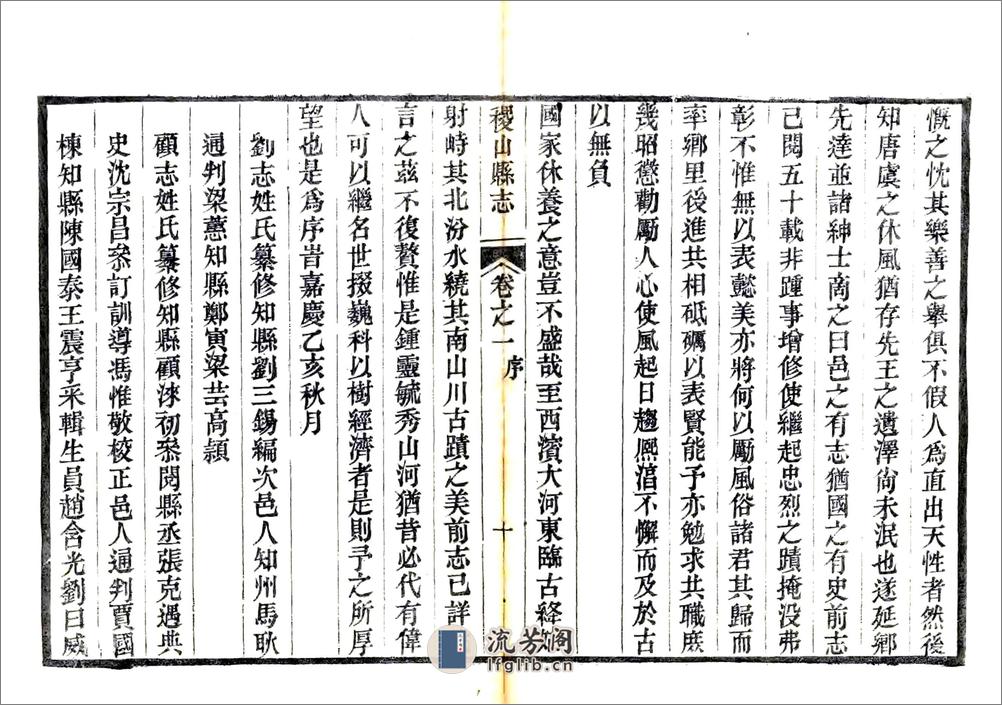 慨之忱其樂善之舉俱不假人爲直出天性者然後
知唐虞之休風猶存先王之遺澤尙未泯也遂延鄉
先達並諸紳士商之曰邑之有志猶國之有史前志
已閱五十載非踵事增修使繼起忠烈之蹟掩没弗
彰不惟無以表懿美亦將何以勵風俗諸君其歸而
率鄉里後進共相砥礪以表賢能予亦勉求共職庶
幾昭懲勸勵人心使風起日趨熙湻不懈而及於古
以無負
國家休養之意豈不盛哉至西濱大河東臨古絳
稷山縣志
卷之一
序
十
射峙其北汾水繞其南山川古蹟之美前志已詳
言之茲不復贅惟是鍾靈毓秀山河猶昔必代有偉
人可以繼名世掇巍科以樹經濟者是則予之所厚
望也是爲序旹嘉慶乙亥秋月
劉志姓氏纂修知縣劉三錫編次邑人知州馬耿
通判梁蕙知縣鄭寅梁芸高頴
顧志姓氏纂修知縣顧涞初叅閱縣丞張克遇典
史沈宗昌叅訂訓導馮惟敬校正邑人通判賈國
棟知縣陳國泰王震亨采輯生員趙含光劉曰威
流芳閣
lfglib.cn